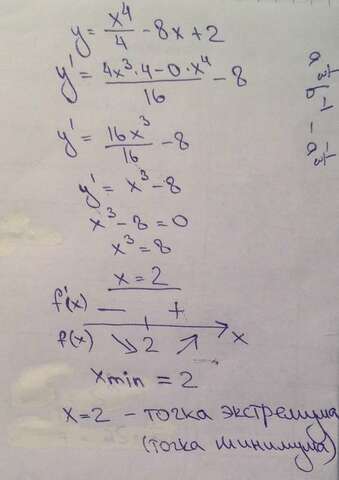 y = x⁴/4 - 8x + 2
y' = (4x³·4 - 0·x⁴)/16 - 8
y' = 16x³/16 - 8
y' = x³ - 8
x³ - 8 = 0
x³ = 8
x = 2
f'(x) — +
f(x) ↘ 2 ↗ x
xmin = 2
x=2 - точка экстремума
(точка минимума)